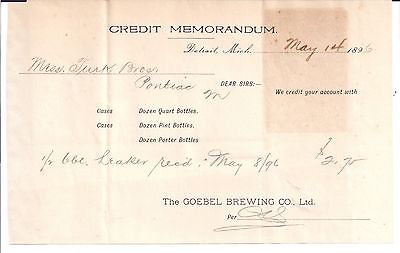 CREDIT MEMORANDUM.
Detroit, Mich. May 14 1896
Mess. Turk Bros
Pontiac
M
DEAR SIRS:— We credit your account with
Cases Dozen Quart Bottles.
Cases Dozen Pint Bottles.
Cases Dozen Porter Bottles
1/2 bbl. Leaker recd. May 8/96 $2.70
The GOEBEL BREWING CO., Ltd.
Per